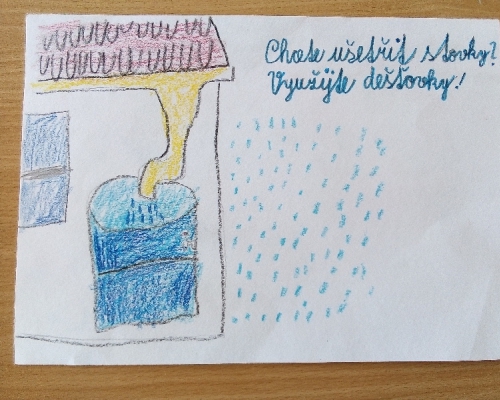 Chcete ušetřit stovky?
Využijte dešťovky!